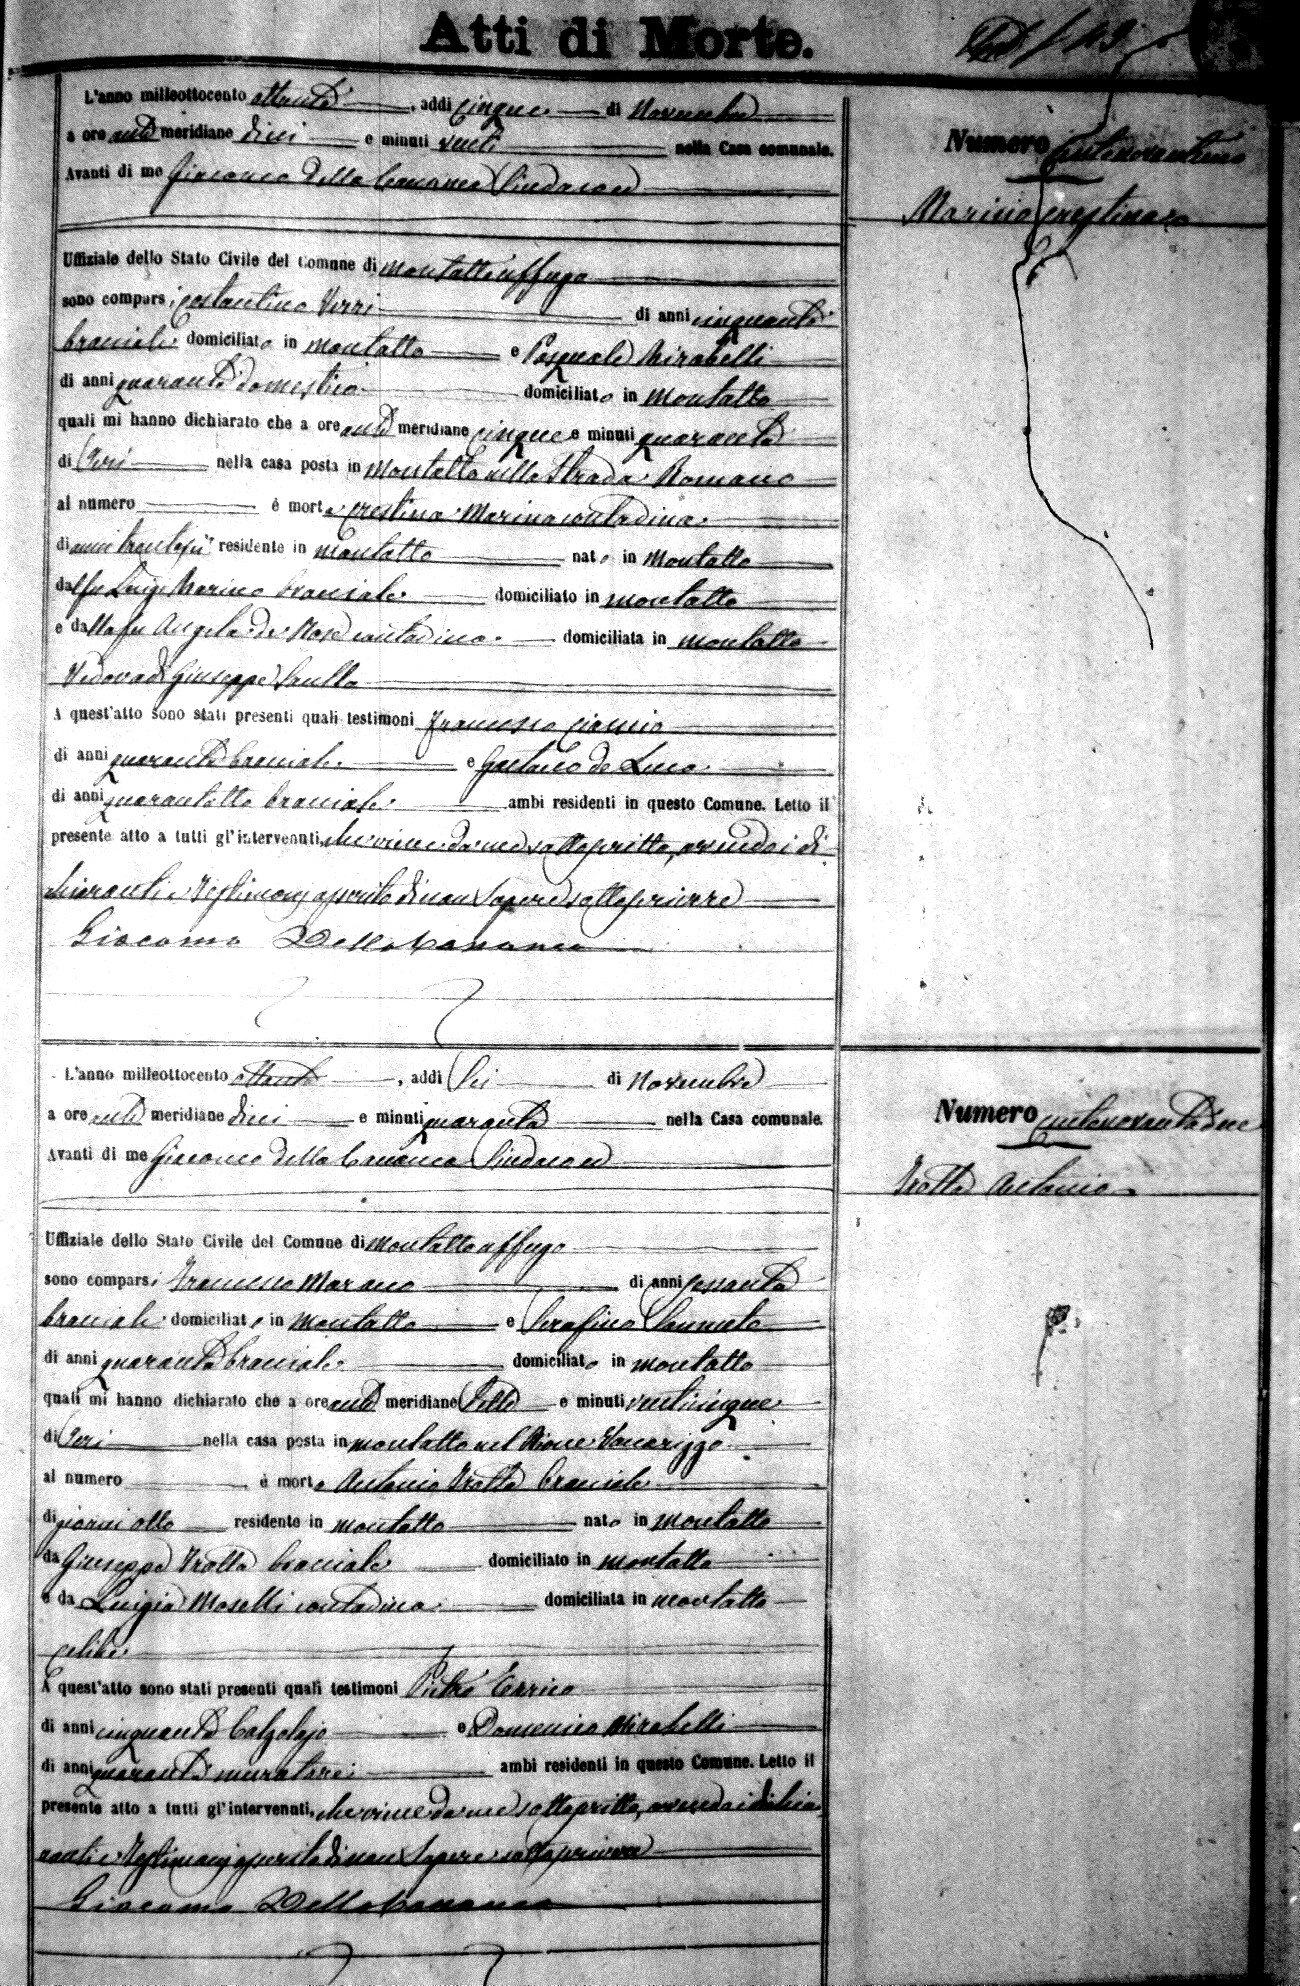 Atti di Morte.
L'anno milleottocento ottanta, addì cinque di Novembre
a ore anti meridiane dieci e minuti venti nella Casa comunale.
Avanti di me Giacomo Della Cananea Sindaco ed
Numero centonovantuno
Marino Crestina
Uffiziale dello Stato Civile del Comune di Montalto uffugo
sono comparsi Costantino Verri di anni cinquanta
bracciale domiciliato in Montalto e Pasquale Mirabelli
di anni quaranta domestico domiciliato in Montalto
quali mi hanno dichiarato che a ore anti meridiane cinque e minuti quaranta
di Ieri nella casa posta in Montalto nella Strada Romano
al numero è morta Crestina Marino contadina
di anni trentasei residente in Montalto nata in Montalto
dal fu Luigi Marino bracciale domiciliato in Montalto
e dalla fu Angela de Rose contadina domiciliata in Montalto
Vedova di Giuseppe Saullo
A quest'atto sono stati presenti quali testimoni Francesco
di anni quaranta bracciale e Gaetano de Luca
di anni quarantotto bracciale ambi residenti in questo Comune. Letto il
presente atto a tutti gl'intervenuti, che viene da me sottoscritto, avendo i di
chiaranti e Testimonj asserito di non sapere sottoscrivere
Giacomo Della Cananea
L'anno milleottocento ottanta, addì Sei di Novembre
a ore anti meridiane dieci e minuti quaranta nella Casa comunale.
Avanti di me Giacomo della Cananea Sindaco ed
Numero centonovantadue
Trotta Antonio
Uffiziale dello Stato Civile del Comune di Montalto uffugo
sono comparsi Francesco Marano di anni sessanta
bracciale domiciliato in Montalto e Serafino Sannuto
di anni quaranta bracciale domiciliato in Montalto
quali mi hanno dichiarato che a ore anti meridiane Sette e minuti venticinque
di Ieri nella casa posta in Montalto nel Rione Vaccarizzo
al numero è morto Antonio Trotta bracciale
di giorni otto residente in Montalto nato in Montalto
da Giuseppe Trotta bracciale domiciliato in Montalto
e da Luigia Moselli contadina domiciliata in Montalto
celibe
A quest'atto sono stati presenti quali testimoni Pietro Errico
di anni cinquanta Calzolajo e Domenico Mirabelli
di anni quaranta muratore ambi residenti in questo Comune. Letto il
presente atto a tutti gl'intervenuti, che viene da me sottoscritto, avendo i dichia
ranti e Testimonj asserito di non sapere sottoscrivere
Giacomo Della Cananea